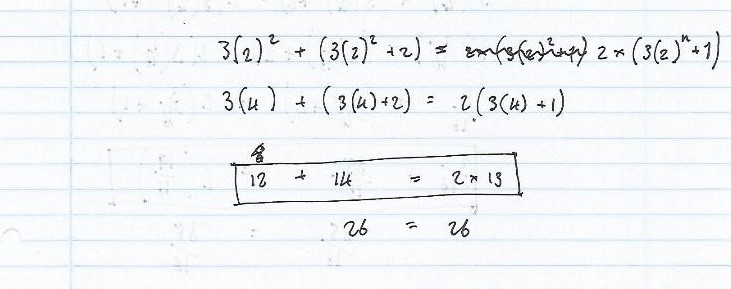 3(2)² + (3(2)² + 2) = 2 × (3(2)ⁿ + 1)
3(4) + (3(4) + 2) = 2(3(4) + 1)
12 + 14 = 2 × 13
26 = 26